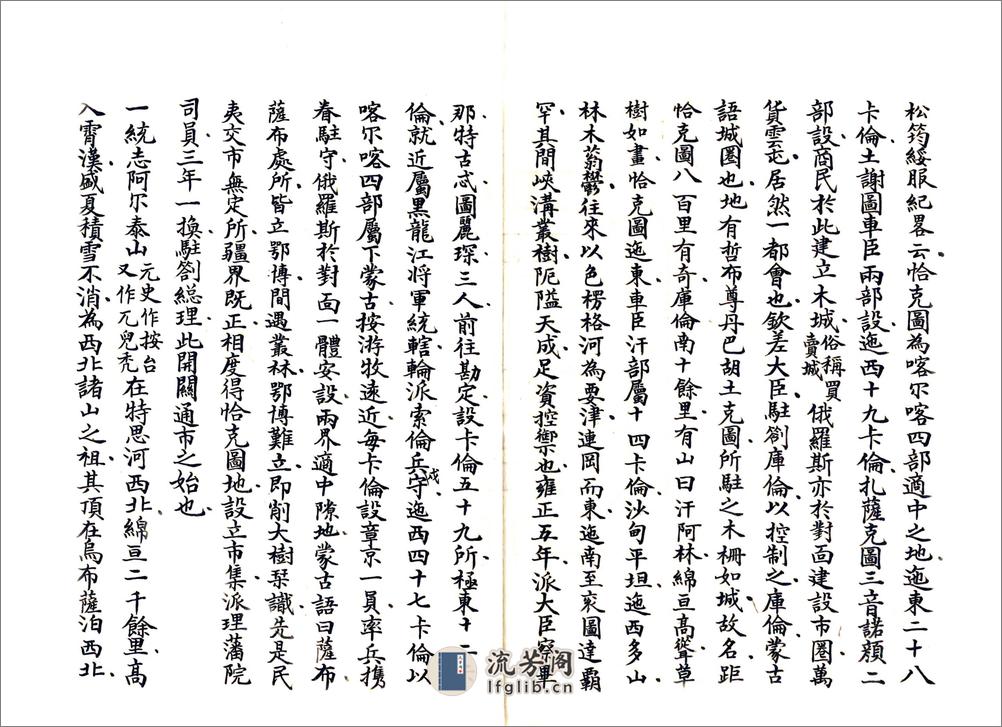 松筠綏服紀畧云恰克圖為喀尔喀四部適中之地迤東二十八
卡倫土謝圖車臣兩部設迤西十九卡倫扎薩克圖三音諾顏二
部設商民於此建立木城俗稱買賣城俄羅斯亦於對面建設市圈萬
貨雲屯居然一都會也欽差大臣駐劄庫倫以控制之庫倫蒙古
語城圈也地有哲布尊丹巴胡土克圖所駐之木柵如城故名距
恰克圖八百里有奇庫倫南十餘里有山曰汗阿林綿亘高聳草
樹如畫恰克圖迤東車臣汗部屬十四卡倫沙甸平坦迤西多山
林木蓊鬱往來以色楞格河為要津連岡而東迤南至衮圖達霸
罕其間峽溝叢樹阨隘天成足資控禦也雍正五年派大臣察畢
那特古忒圖麗琛三人前往勘定設卡倫五十九所極東十二
倫就近屬黑龍江将軍統轄輪派索倫兵戍守迤西四十七卡倫以
喀尔喀四部屬下蒙古按游牧遠近每卡倫設章京一員率兵携
眷駐守俄羅斯於對面一體安設兩界適中隙地蒙古語曰薩布
薩布處所皆立鄂博間遇叢林鄂博難立即削大樹栞識先是民
夷交市無定所疆界既正相度得恰克圖地設立市集派理藩院
司員三年一換駐劄総理此開關通市之始也
一統志阿尔泰山元史作按台又作兀兒禿在特思河西北綿亘二千餘里高
入霄漢盛夏積雪不消為西北諸山之祖其頂在烏布薩泊西北
流芳阁
lfglib.cn